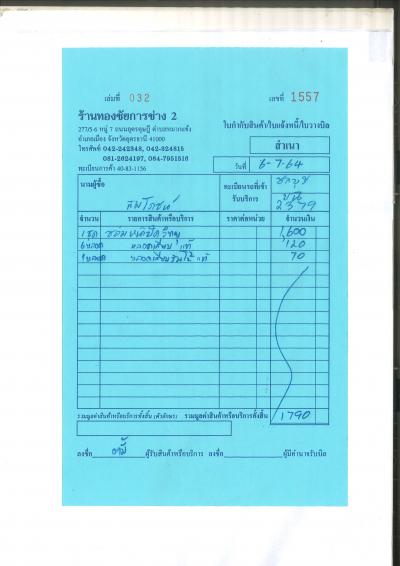 เล่มที่ 032 เลขที่ 1557
ร้านทองชัยการช่าง 2
277/5-6 หมู่ 7 ถนนอุดรดุษฎี ตำบลหมากแข้ง
อำเภอเมือง จังหวัดอุดรธานี 41000
โทรศัพท์ 042-242348, 042-324815
081-2624197, 084-7951516
ทะเบียนการค้า 40-83-1156
ใบกำกับสินค้า/ใบแจ้งหนี้/ใบวางบิล
สำเนา
วันที่ 6-7-64
นามผู้ซื้อ
ทะเบียนรถที่เข้ารับบริการ 2379
จำนวน รายการสินค้าหรือบริการ ราคาต่อหน่วย จำนวนเงิน
1 ชุด 1,600
หลอดเสียบ แท้ 120
70
รวมมูลค่าสินค้าหรือบริการทั้งสิ้น (ตัวอักษร) รวมมูลค่าสินค้าหรือบริการทั้งสิ้น 1790
ลงชื่อ ผู้รับสินค้าหรือบริการ ลงชื่อ ผู้มีอำนาจรับบิล